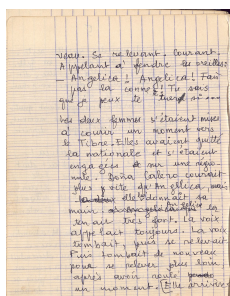 veau. Se relevant. Courant.
Appelant à fendre les oreilles
— Angelica ! Angelica ! Fais
pas la conne ! Tu sais
que je peux te tuer si ...
Les deux femmes s'étaient mises
à courir un moment vers
le Tibre. Elles avaient quitté
la nationale et s'étaient
engagées sur une régio-
nale. Dona courait
plus vite qu'Angelica, mais
elle donnait sa
main
en air très fort. La voix
appelait toujours. La voix
tombait, puis se relevait
Puis tombait de nouveau
pour se relever plus loin
après avoir roulé
un moment. Elle arrivait